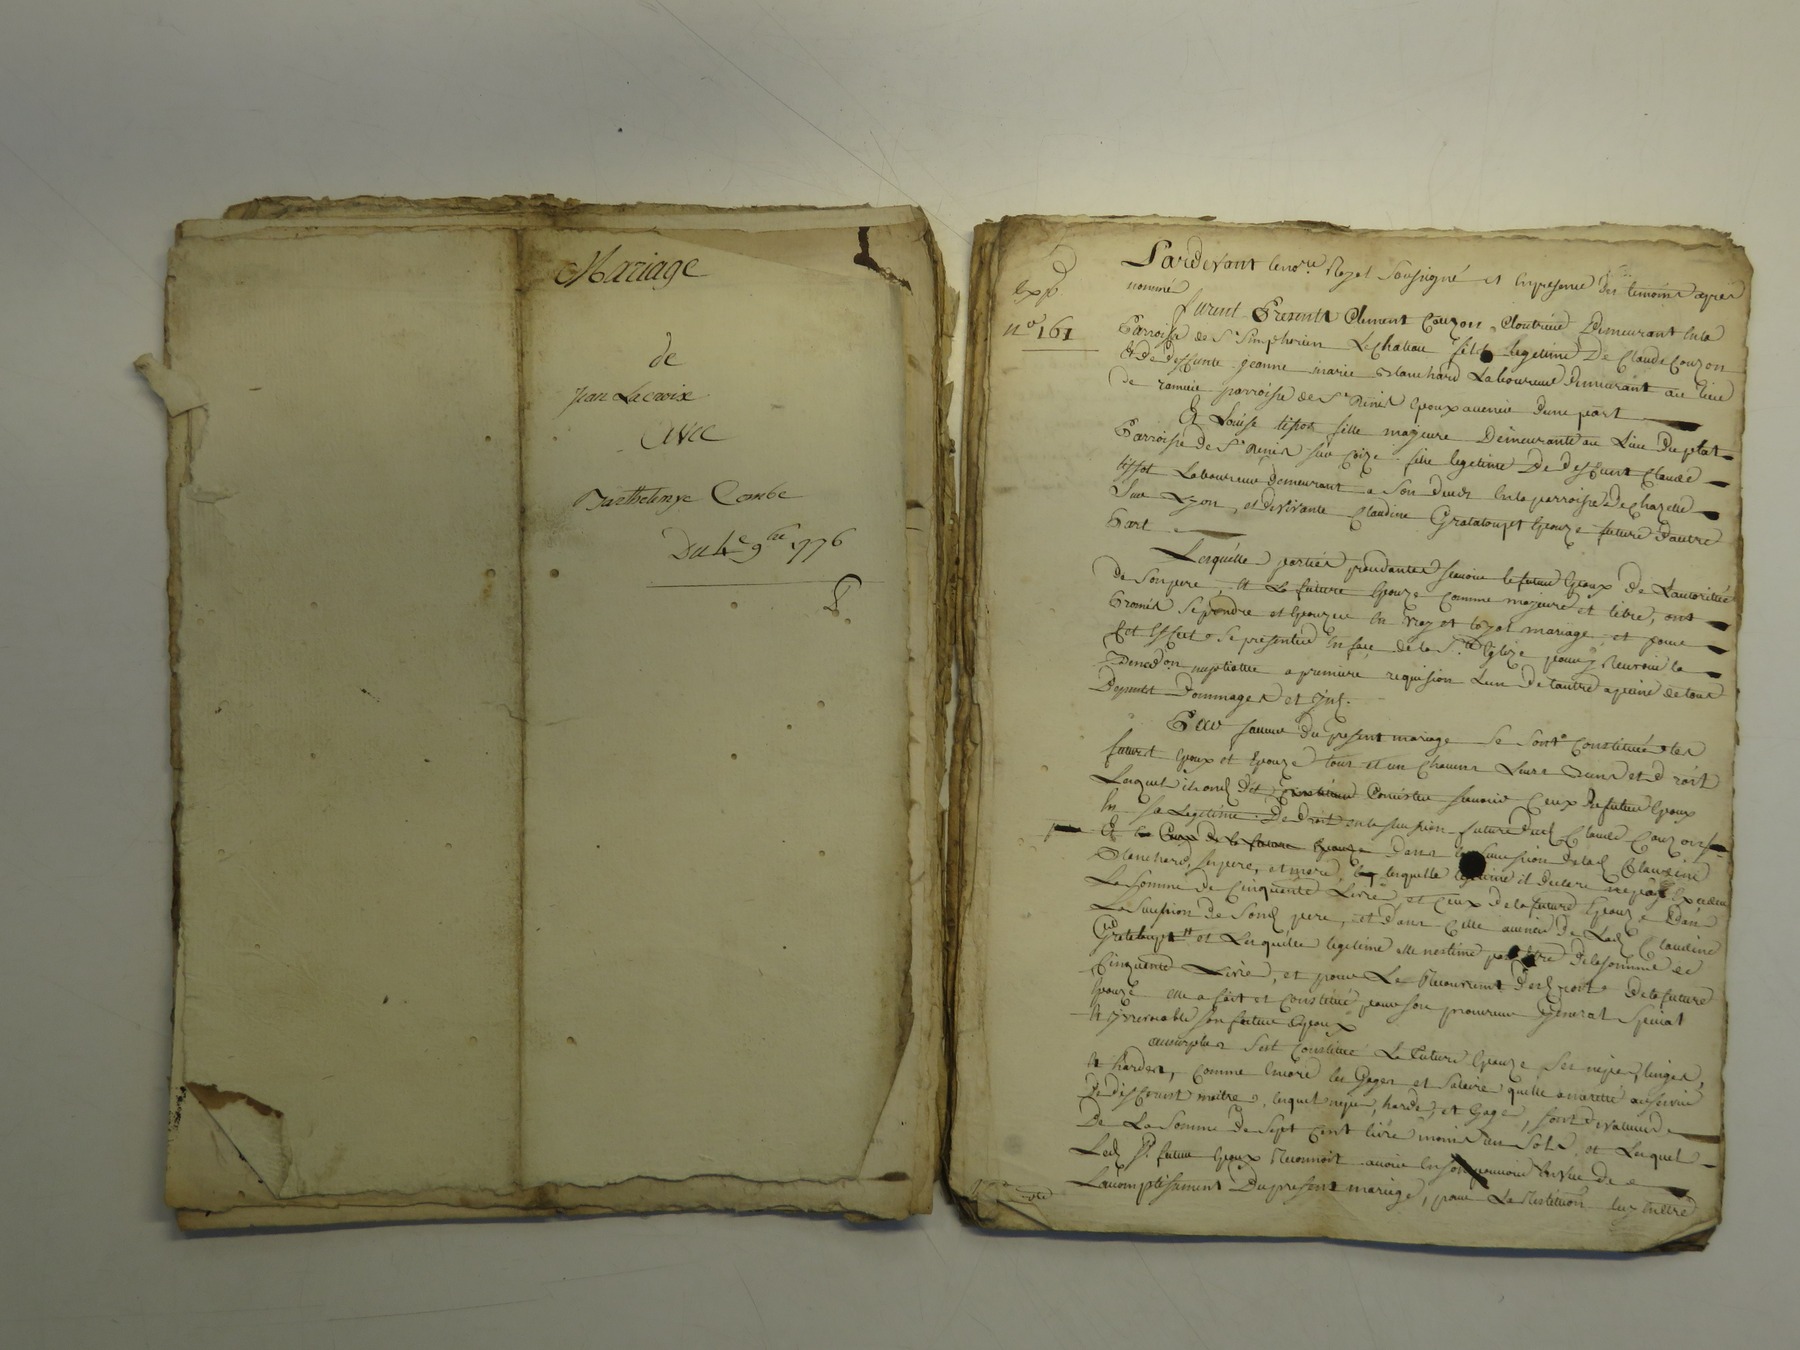 Mariage
de
Jean Lacroix
Avec
Barthelemye Combe
Du 4e 9bre 1776
Exp
n° 161
Pardevant le nore Royal Soussigné et En presence des temoins apres
nommé
furent Presents Clement Couzon, Cloutrier Demeurant En la
Parroisse de St Simphorien Le Chateau fils legitime De Claude Couzon
Et de deffunte jeanne marie Blanchard Laboureur demeurant au lieu
de parroisse de St Denis Epoux avenir dune part
Et Louise tissot fille majeure Demeurante au Lieu Du plat
Parroisse de St Denis sur Coize fille legitime De deffunt Claude
tissot Laboureur demeurant a Son deceds En la parroisse de chazelle
Sur Lyon, et de vivante Claudine Grataloupt Epouze future dautre
Part
Lesquelles parties procedantes scavoir le futur Epoux de Lautoritée
de Son pere, et La future Epouze Comme majeure et libre, ont
Promis Se prendre et Epouzer En vray et loyal mariage, et pour
Cet Effect Se presenter En face de la Ste Eglize pour y Recevoir la
Bened.on nuptialle a premiere requision Lun De Lautre a peine de tous
Depents Dommages et Int.
En faveur Du present mariage Se Sont Constitués les
futurs Epoux et Epouze tous et un Chacuns Leurs Biens et Droits
Lesquels ils ont Dit Consister scavoir Ceux du futur Epoux
En Sa Legitime De Droit En la succession future dud. Claude Couzon
Et dans la succession de lad.
Blanchard, Ses pere, et mere, laquelle legitime il declare ne pas Exceder
La Somme de Cinquante Livres, et Ceux de la future Epouze Dans
La Succession de Sond. pere, et dans Celle avenir de Lad. Claudine
Grataloupt et Lesquelles legitime elle nestime pas Etre de la Somme de
Cinquante Livres, et pour Le Recouvrement Desd. droits de la future
Epouze elle a fait et Constitué pour Son procureur General Special
Et irrevocable Son futur Epoux
Ausurplus Sest Constituée La future Epouze Ses nipes, linges,
Et hardes, Comme Encore les Gages et Salaire quelle a
De differents maitres, lesquels nipes, hardes, et Gages, Sont de valeur de
De La Somme de Sept Cent livres moins un Sols, et Lesquels
Led. Sr. futur Epoux Reconnoit avoir En Son pouvoir En vue de
Lacomplissement Du present mariage, pour La Restitution luy En Etre